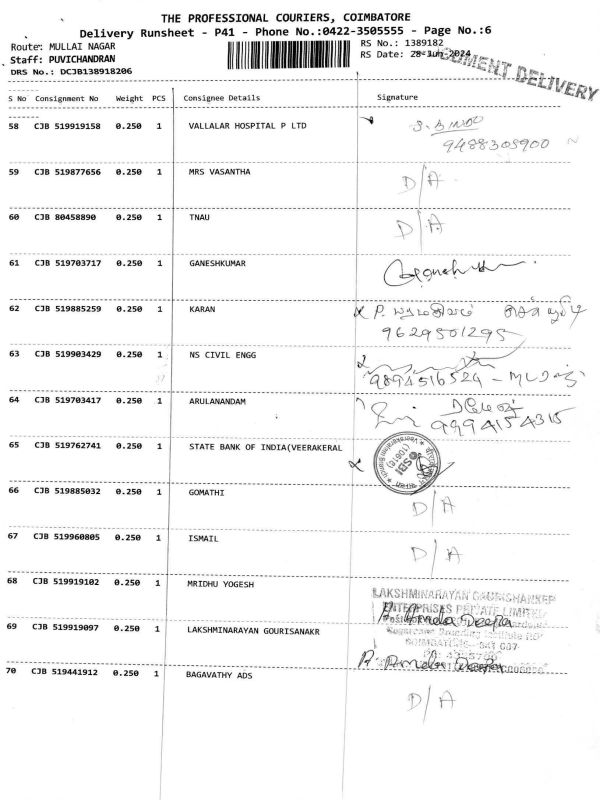 THE PROFESSIONAL COURIERS, COIMBATORE
Delivery Runsheet - P41 - Phone No.:0422-3505555 - Page No.:6
Route: MULLAI NAGAR RS No.: 1389182
Staff: PUVICHANDRAN RS Date: 28-Jun-2024
DOCUMENT DELIVERY
DRS No.: DCJB138918206
S No Consignment No Weight PCS Consignee Details Signature
58 CJB 519919158 0.250 1 VALLALAR HOSPITAL P LTD
9488305900
59 CJB 519877656 0.250 1 MRS VASANTHA D/A
60 CJB 80458890 0.250 1 TNAU D/A
61 CJB 519703717 0.250 1 GANESHKUMAR
62 CJB 519885259 0.250 1 KARAN
9629501295
63 CJB 519903429 0.250 1 NS CIVIL ENGG
9894516524
64 CJB 519703417 0.250 1 ARULANANDAM
9994154315
65 CJB 519762741 0.250 1 STATE BANK OF INDIA(VEERAKERAL
SBI
66 CJB 519885032 0.250 1 GOMATHI D/A
67 CJB 519960805 0.250 1 ISMAIL D/A
68 CJB 519919102 0.250 1 MRIDHU YOGESH
LAKSHMINARAYAN GOURISHANKER
ENTERPRISES PRIVATE LIMITED
69 CJB 519919097 0.250 1 LAKSHMINARAYAN GOURISANAKR
Sugarcane Breeding Institute PO
COIMBATORE - 641 007
70 CJB 519441912 0.250 1 BAGAVATHY ADS D/A